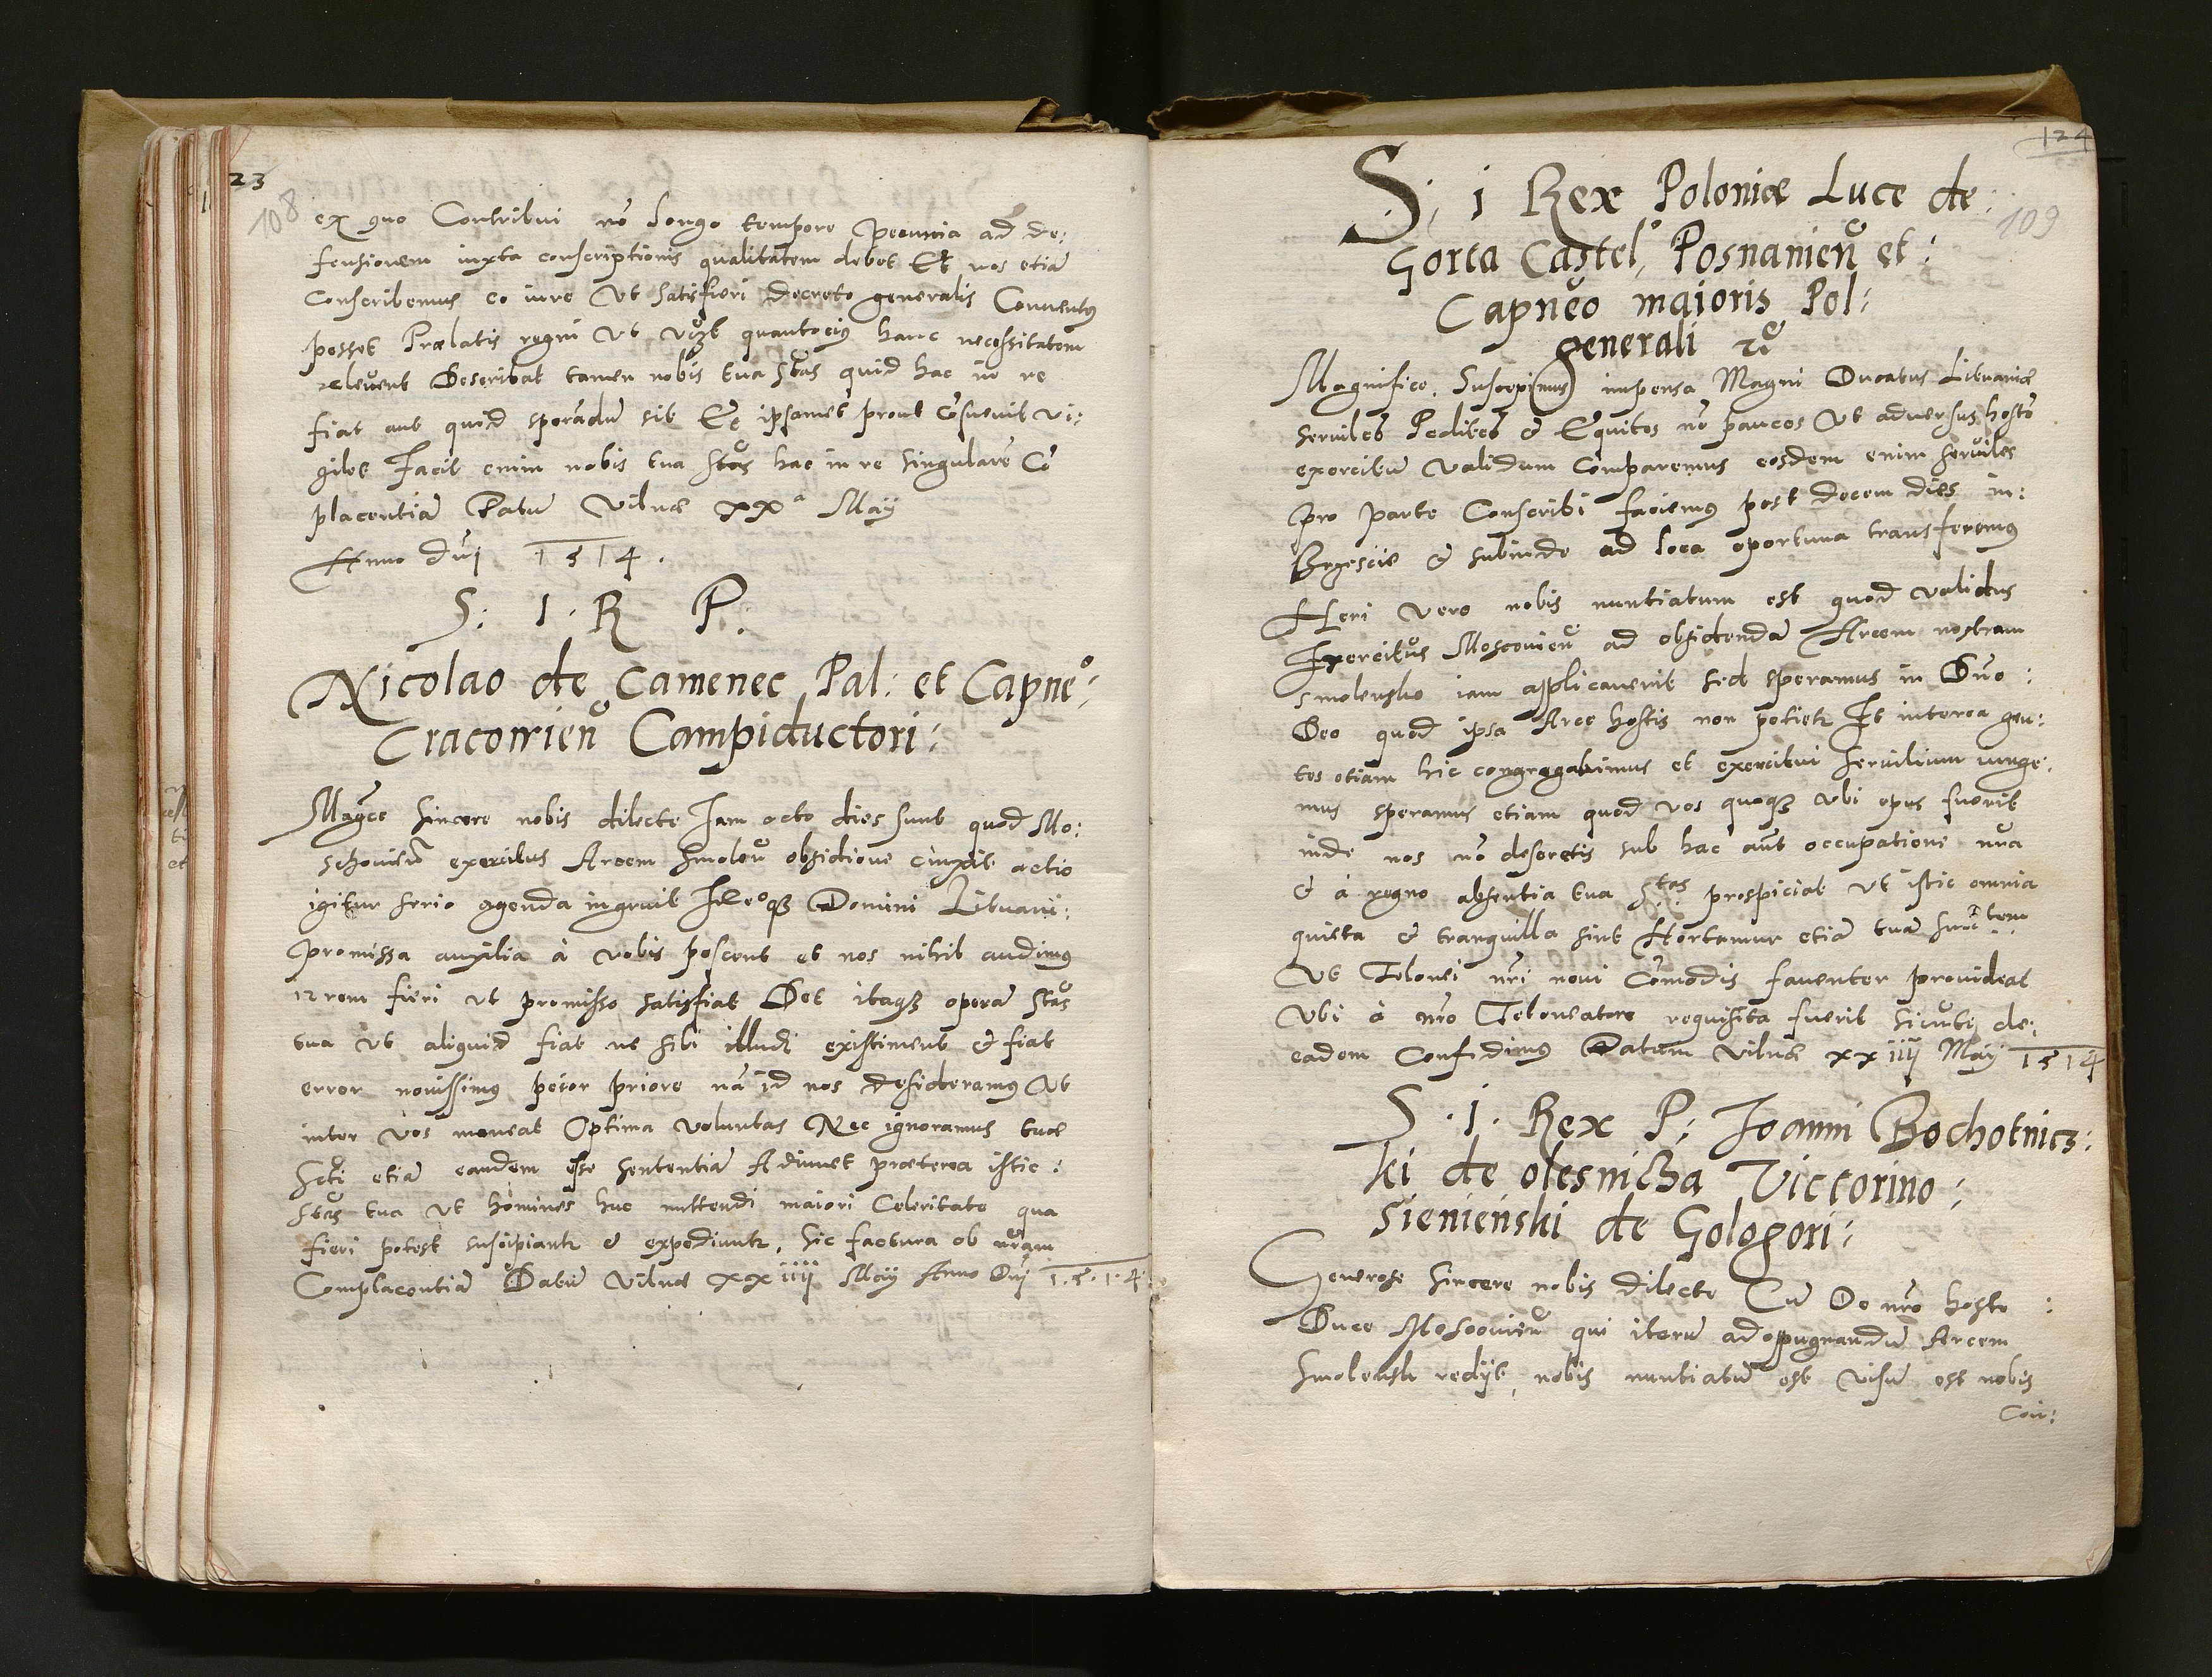 23
108
ex quo Contribui nō longo tempore pecunia ad de:
fensionem iuxta conscriptionis qualitatem debet Et nos etiā
Conscribemus eo iure Vt satisfieri Decreto generalis Conuentus
posset Prælatis regni Vt quantocius hanc necessitatem
releuent Describat tamen nobis tua Stas quid hac in re
fiat aut quid sperādū sit Et ipsamet prout Cōsueuit vi:
gilet Facit enim nobis tua Stas hac in re singularē Cō
placentiā Datū Vilnæ xxa Maÿ
Anno dni 1514.
S: I. R P:
Nicolao de Camenec Pal: et Capneo:
Cracouien Campiductori:
Magce sincere nobis dilecte Iam octo dies sunt quod Mo:
schouien exercitus Arcem Smolen obsidione cinxit actio
igitur serio agenda ingruit Ideoqz Domini Lituani:
promissa auxilia à vobis poscent et nos nihil audimus
rem fieri ut promisso satisfiat Det itaqz operā Stas
tua ut aliquid fiat ne sibi illudi existiment & fiat
error nouissimus peior priore nā id nos desideramus Vt
inter vos maneat Optima voluntas Nec ignoramus tuæ
Scti etiā eandem esse sententiā Adiuuet præterea istic:
Stas tua ut homines huc mittendi maiori Celeritate qua
fieri potest suscipiantr & expediantr, sic factura ob nram
Complacentiā Datū Vilnæ xxiiij Maÿ Anno Dnj 1.5.1.4
124
109
S: i Rex Poloniæ Luce de:
Gorca Castel, Posnanien et:
Capneo maioris Pol:
generali
Magnifice. Suscepimus impensa Magni Ducatus Lituaniæ
seruiles Pedites & Equites nō paucos Vt aduersus hostē
exercitū validum Comparemus eosdem enim seruiles
pro parte Conscribi faciemus post decem dies in:
Brzesciæ & subinde ad loca oportuna transferemus
Heri vero nobis nuntiatum est quod validus
Exercitus Moscouien ad obsidendā Arcem nostram
Smolensko iam applicauerit sed speramus in Dno:
Deo quod ipsa Arce hostis non potietr Et interea gen:
tes etiam hic congregabimus et exercitui seruilium iunge:
mus speramus etiam quod vos quoqz vbi opus fuerit
inde nos nō deseretis sub hac aut occupatione nra
& à regno absentia tua Stas prospiciat ut istic omnia
quieta & tranquilla sint Hortamur etiā tuā tem
Vt Telonei nri noui Cōmodis fauenter prouideat
Vbi à nro Teloneatore requisita fuerit sicuti de:
eadem Confidimus Datum Vilnæ xxiiij Maÿ 1514
S. I. Rex P: Ioanni Bochotnicz:
ki de olesnicha Victorino:
Sienieński de Gologori:
Generose sincere nobis dilecte Cū De nro hoste:
Duce Moscouien qui iterū ad opugnandū Arcem
Smolensk redijt, nobis nuntiatū est visū est nobis
Con: